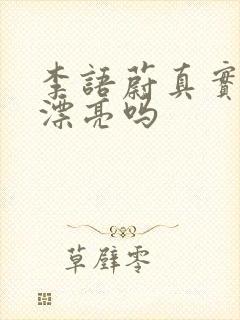 李語蔚真實
漂亮吗
草壁零